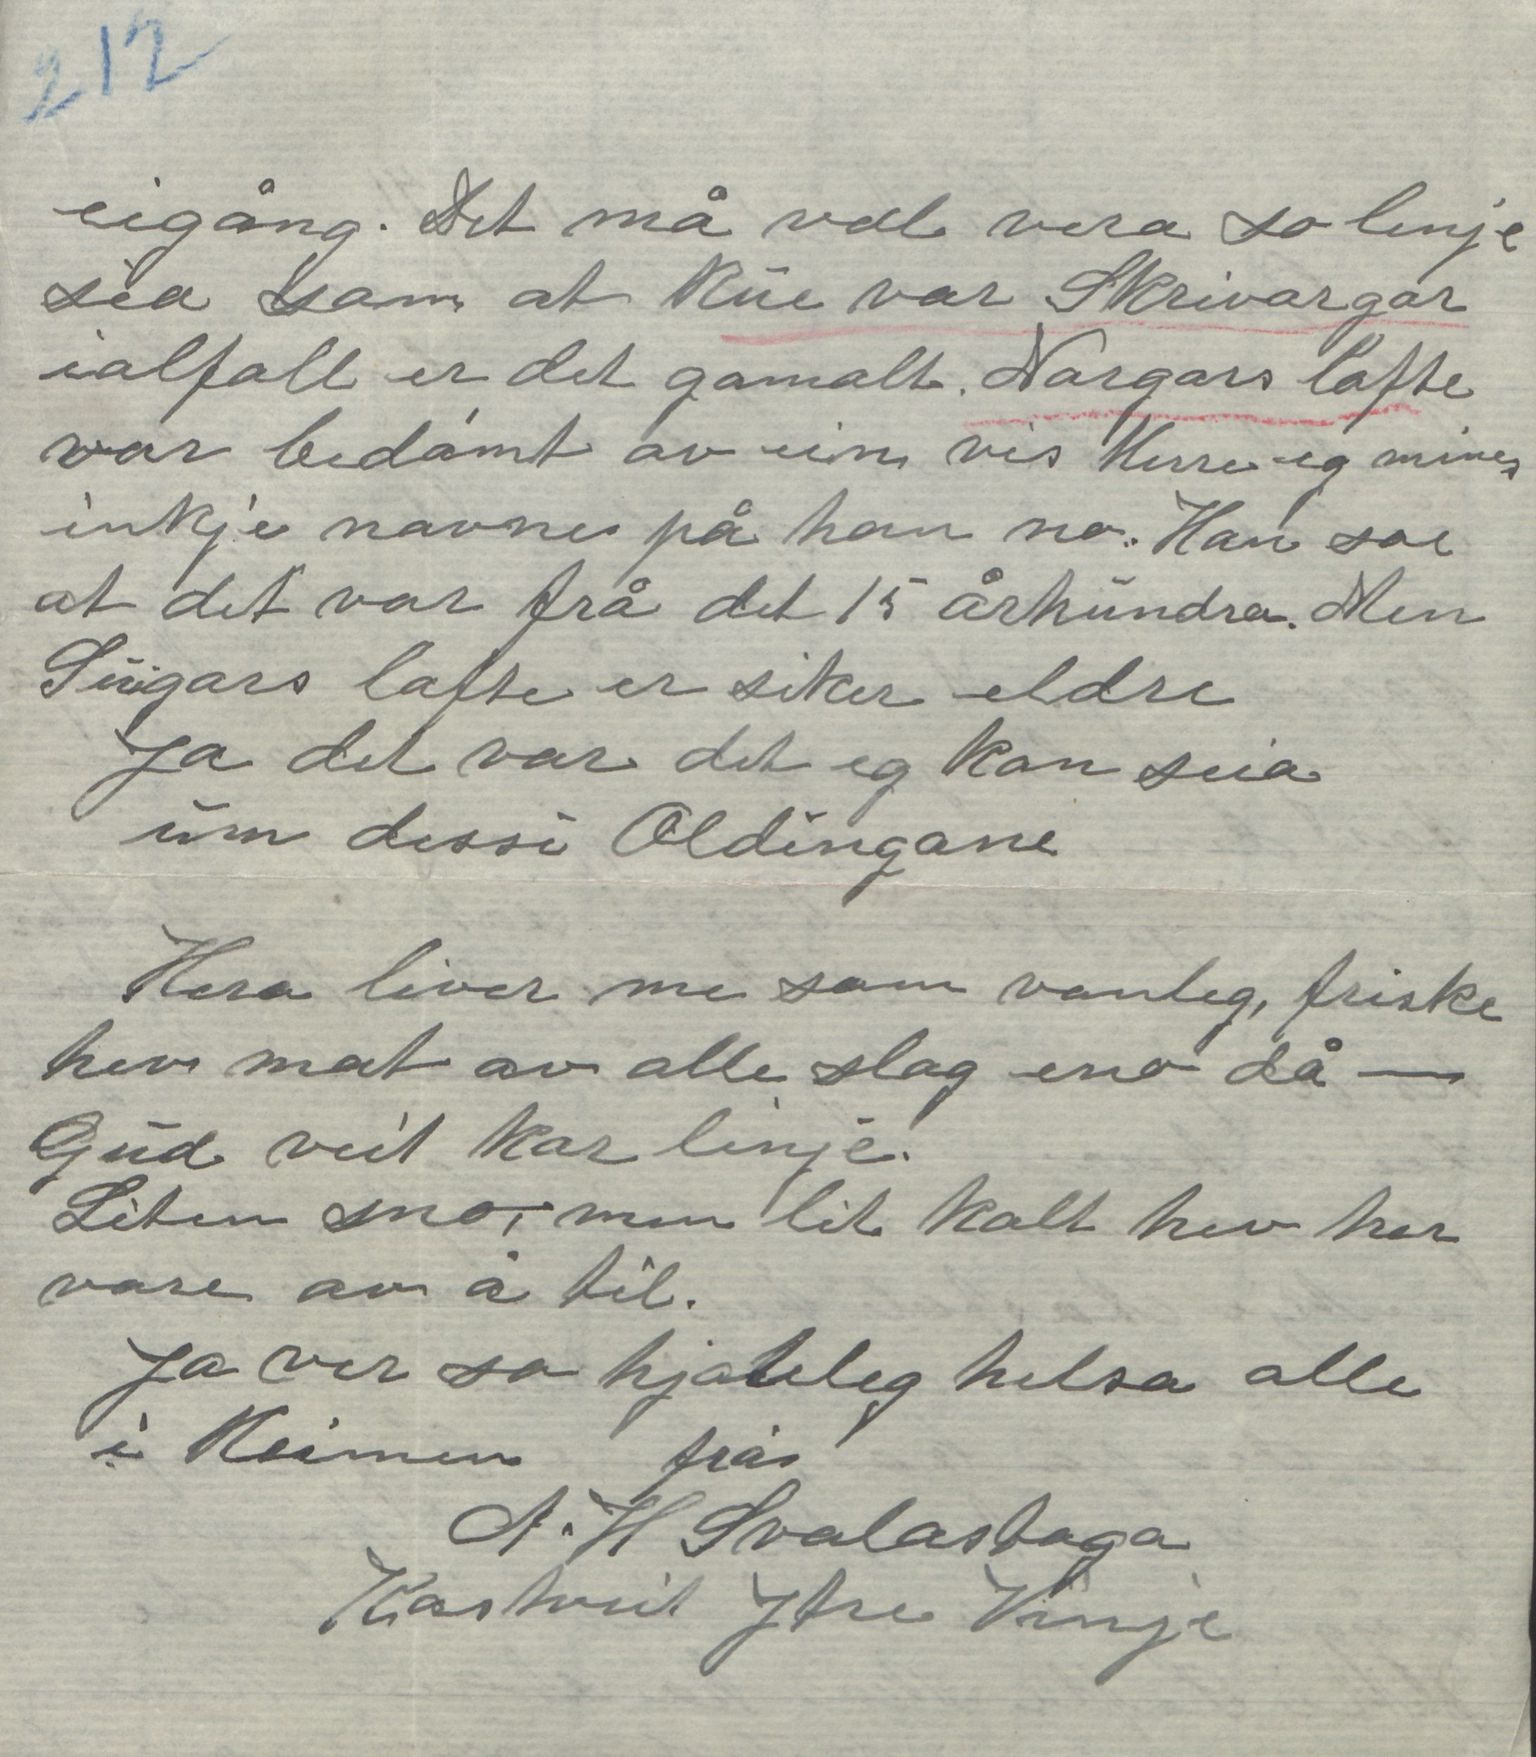 212
eigång. Det må vel vera so lenje
sia som at Rue var Skrivargar
ialfall er det gamalt. Nargars lofte
var bedømt av ein vis Herre eg mines
inkje navne på han no. Han sae
at det var frå det 15 århundra. Men
Suigars lofte er siker eldre
Ja det var det eg kan seia
um dessi Oldingane
Hera liver me som vanleg, friske
hev mat av alle slag eno då —
Gud veit kor linje.
Liten sno, men lit kalt hev her
vare av å til.
Ja ver so hjateleg helsa alle
i Heimen frå
A. H Svalastoga
Kostveit Ytre Vinje